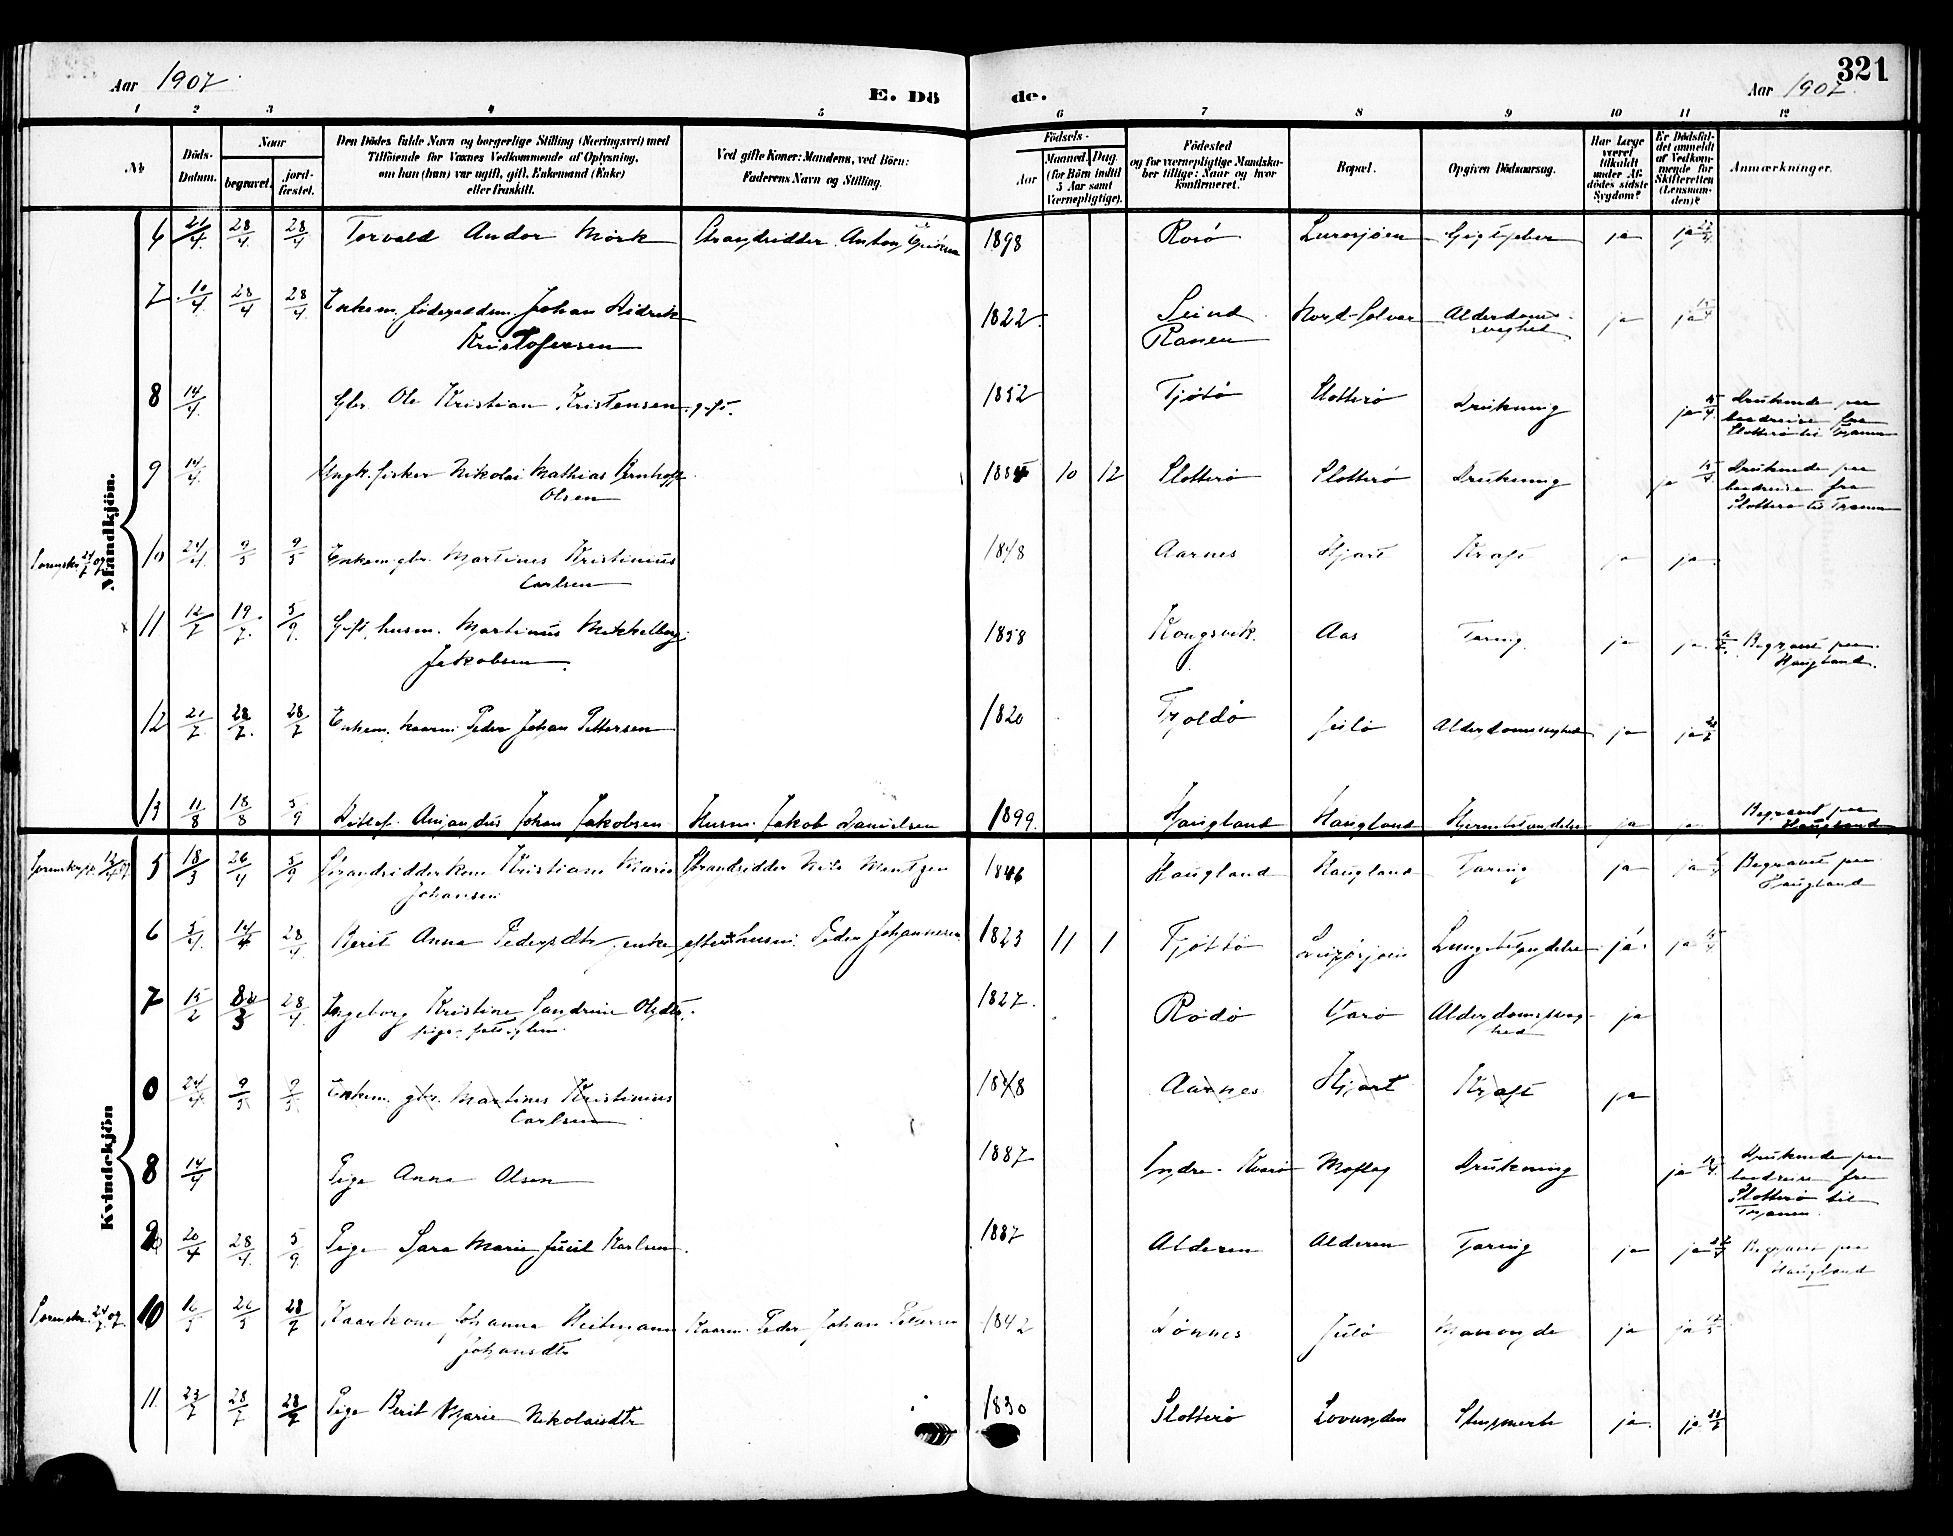 Aar 1907.
E. Dö de.
Aar 1907.
321
1 2 3 4 5 6 7 8 9 10 11 12
№
Döds-Datum.
Naar begravet. jord-fæstet.
Den Dödes fulde Navn og borgerlige Stilling (Næringsvei) med Tilföiende for Voxnes Vedkommende af Oplysning, om han (hun) var ugift, gift, Enkemand (Enke) eller fraskilt.
Ved gifte Koner: Mandens, ved Börn: Faderens Navn og Stilling.
Födsels-
Aar
Maaned. Dag. (for Börn indtil 5 Aar samt Værnepligtige).
Födested og for værnepligtige Mandskaber tillige: Naar og hvor konfirmeret.
Bopæl.
Opgiven Dödsaarsag.
Har Læge været tilkaldt under Afdödes sidste Sygdom?
Er Dödsfaldet anmeldt af Vedkommende for Skifteretten (Lensmanden)?
Anmærkninger.
Mandkjön.
6 21/4 28/4 28/4 Torvald Andor Mörk Strandridder Anton 1898 Rosö Luresjöen Gigtfeber ja ja
7 10/4 28/4 28/4 Enkem. föderaadsm. Johan Didrik 1822. Nord-Solvær Alderdoms- ja ja
Kristofersen Ranen svaghed
8 14/4 Gbr. Ole Kristian Kristensen, gift. 1852 Tjötö Slotterö Drukning ja 15/4 Druknede paa
baadreise fra
Slotterö til Træmen
9 14/4 Ungk. fisker Nikolai Mathias Bernhoff 10 12 Slotterö Slotterö Drukning ja 15/4 Druknede paa
Olsen baadreise fra
Slotterö til Trænen
10 24/4 9/5 9/5 Enkem. gbr. Martines Kristinius 1848 Aarnes Hjart Kræft ja ja
Carlsen
11 12/7 19/7. 5/9. Gift, husm. Martinus Mekkelborg 1858 Kongsvik. Aas Tæring. ja ja Begravet paa
Jakobsen Haugland.
12 21/7. 28/7. 28/7 Enkem. kaarm. Peder Johan Pettersen 1820 Tjoldö Julö Alderdomssvaghed ja ja
13 11/8 18/8 5/9 Amandus Johan Jakobsen Husm. Jakob Danielsen 1899. Haugland Haugland Hjernebetændelse ja ja Begravet paa
Haugland
Kvindekjön
5 18/3 26/4 5/9 Strandridderkone Kristiane Marie Strandridder Nils Mentzen 1846 Haugland Haugland Tæring ja ja Begravet paa
Johansen Haugland
6 5/4. 14/4 28/4 Berit Anna Pedersdtr, enke efter husm. Peder Johannesen 1823 11 1 Tjöttö Lungebetændelse ja. ja
7 15/2 28/4 Ingeborg Kristine Sandrine Olsdtr. 1827. Rödö Varö Alderdomssvag- ja
pige, fattiglem hed
0 24/4 9/5 9/5 Enkem. gbr. Martines Kristinius 1848 Aarnes Hjart Kræft ja
Carlsen
8 14/4 Pige Anna Olsen 1887 Indre-Kvarö Moflag Drukning ja 15/4 Druknede paa
baadreise fra
Slotterö til
Trænen.
9 20/4 28/4. 5/9. Pige Sara Marie Juul Karlsen. 1887 Alderen Alderen Tæring ja ja Begravet paa
Haugland
10 16/5 26/5 28/7 Kaarkone Johanna Heitmann Kaarm. Peder Johan Pettersen 1842 Dönnes Julö Mavesyge ja ja
Johansdtr
11. 23/7 28/7 28/7 Pige Berit Marie Nikolaisdtr 1830 Slotterö Lovunden ja. ja